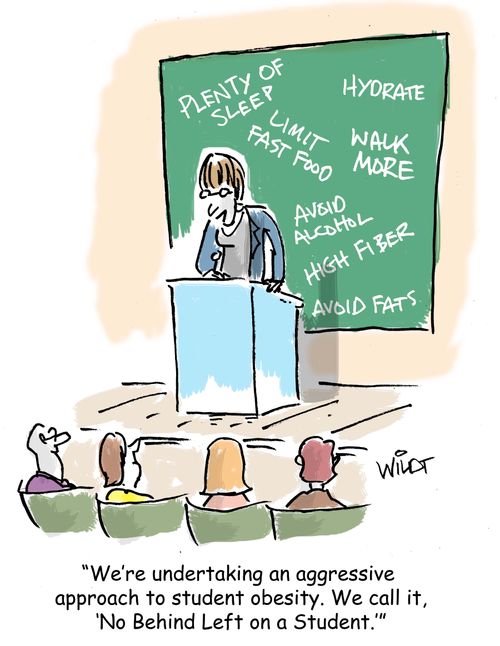 PLENTY OF
SLEEP
HYDRATE
LIMIT
FAST FOOD
WALK
MORE
AVOID
ALCOHOL
HIGH FIBER
AVOID FATS
WILDT
“We’re undertaking an aggressive
approach to student obesity. We call it,
‘No Behind Left on a Student.’”